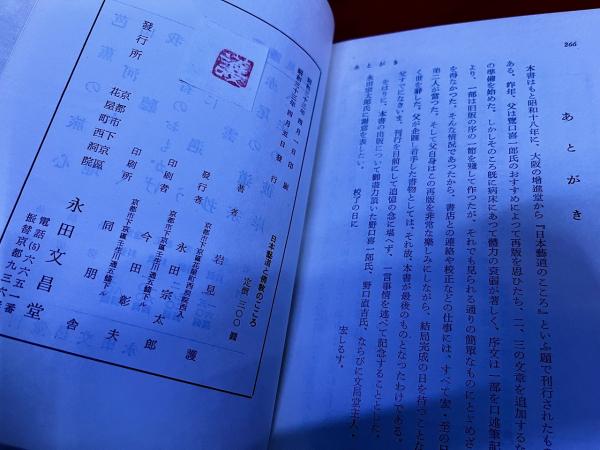 266
あとがき
あとがき
本書はもと昭和十八年に、大阪の増進堂から『日本藝道のこころ』といふ題で刊行されたも
ある。昨年、父は豐口喜一郎氏のおすすめによつて再版を思ひたち、二、三の文章を追加するな
の準備を始めた。しかしそのころ既に病床にあつて體力の衰弱が著しく、序文は一部を口述筆記
より、一部は旧版の序の一節を残して作つたが、それでも見られる通りの簡單なものにとどめざ
を得なかつた。そんな情況であつたから、書店との連絡や校正などの仕事には、すべて宏・至の兄
第二人が當つた。そして父自身はこの再版を非常な樂しみにしながら、結局完成の日を待つことな
く世を辭した。父が企圖し着手した書物としては、それ故、本書が最後のものとなつたわけである。
父すでになきいま、刊行を目前にして追憶の念に堪へず、一言事情を述べて記念することとした。
をはりに、本書の出版について御盡力頂いた野口喜一郎氏、野口直吉氏、ならびに文昌堂主人・
永田宗太郎氏に謝意を表したい。
校了の日に
宏しるす。
日本藝道と佛教のこころ
定價 三〇〇圓
昭和三十三年四月一日 印刷
昭和三十三年四月五日 發行
著者 岩見護
京都市下京區花屋町西洞院西入
發行者 永田宗太郎
京都市下京區壬生川通五條下ル
印刷者 今田彰夫
京都市下京區壬生川通五條下ル
印刷所 同朋舎
發行所
京都市下京區
花屋町西洞院
永田文昌堂
電話(5)六六五一番
振替京都九三六番